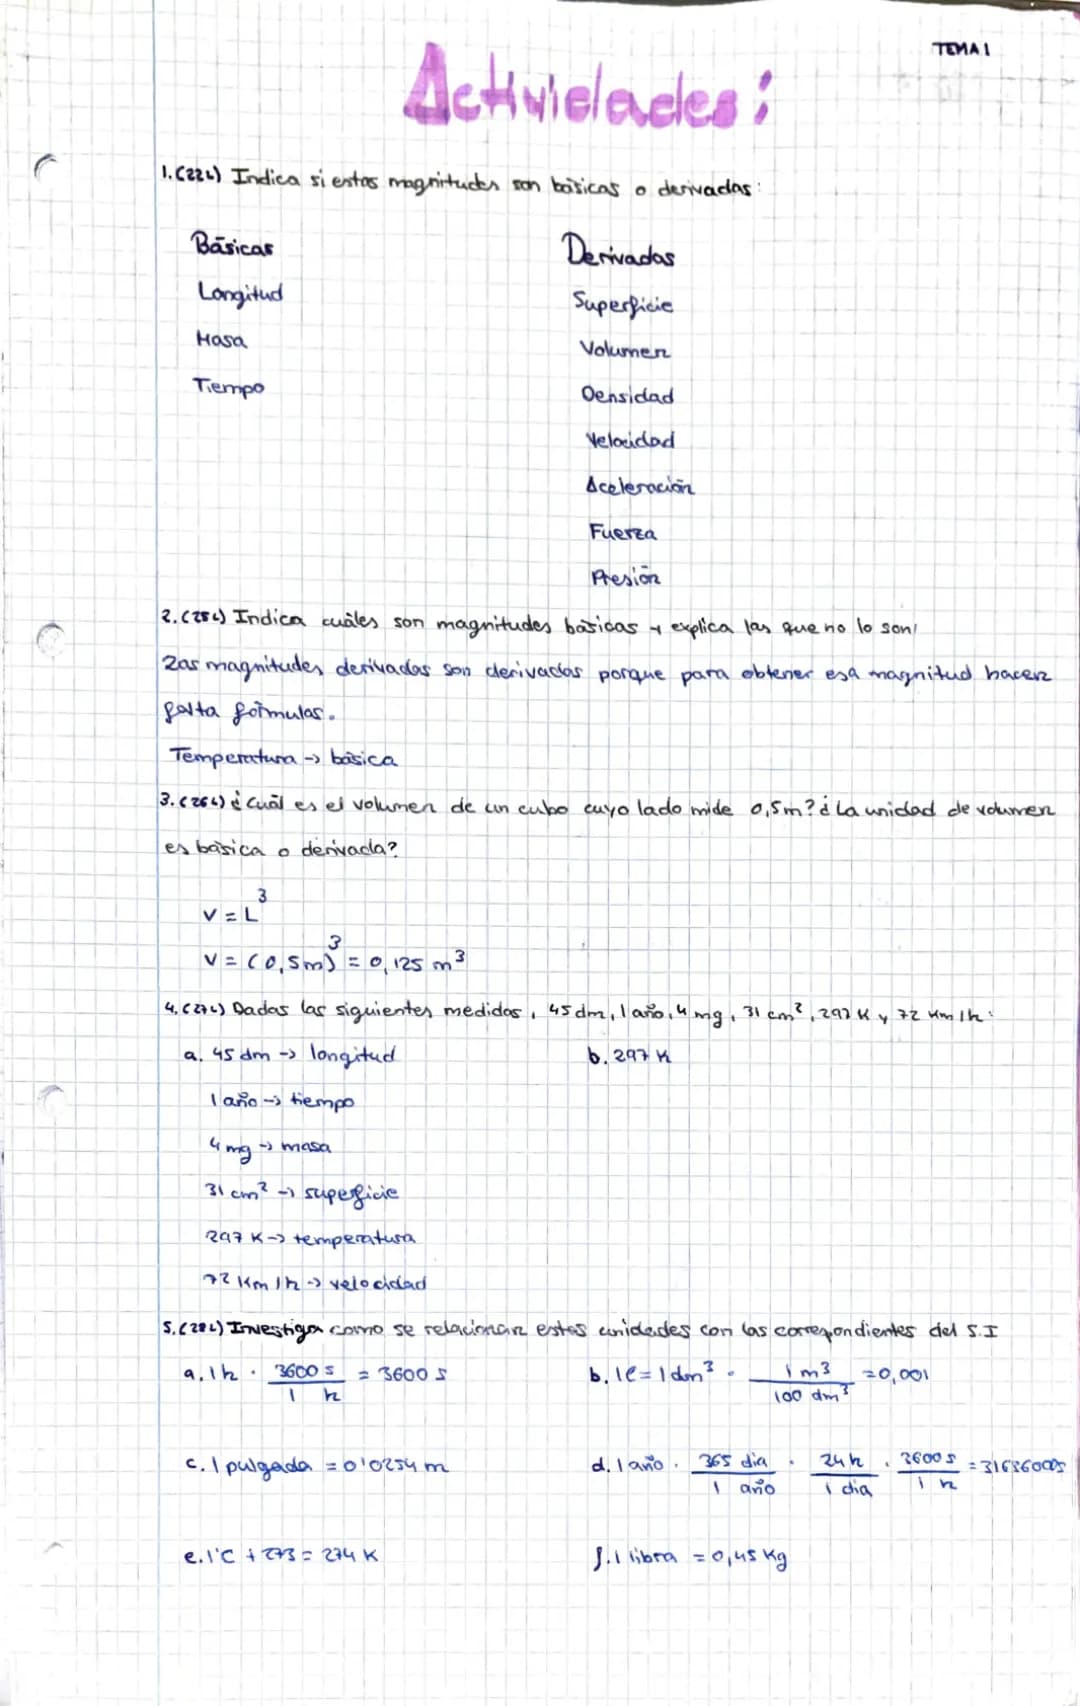 TEMA 1
Actividades:
1. (22L) Indica si estas magnitudes son básicas o derivadas:
Básicas
Derivadas
Longitud
Superficie
Masa
Volumen
Tiempo
Densidad
Velocidad
Aceleración
Fuerza
Presión
2. (25L) Indica cuáles son magnitudes básicas y explica las que no lo son/
Las magnitudes derivadas son derivadas porque para obtener esa magnitud hacen
falta fórmulas.
Temperatura -> básica
3. (26L) ¿Cuál es el volumen de un cubo cuyo lado mide 0,5m? ¿La unidad de volumen
es básica o derivada?
V = L³
V = (0,5m)³ = 0,125 m³
4. (27L) Dadas las siguientes medidas, 45 dm, 1 año, 4 mg, 31 cm², 297 K y 72 Km/h:
a. 45 dm -> longitud
b. 297 K
1 año -> tiempo
4 mg -> masa
31 cm² -> superficie
297 K -> temperatura
72 Km/h -> velocidad
5. (28L) Investiga como se relacionan estas unidades con las correspondientes del S.I
a. 1 h · 3600 s / 1 h = 3600 s
b. 1l = 1 dm³ · 1 m³ / 100 dm³ = 0,001
c. 1 pulgada = 0'0254 m
d. 1 año · 365 dia / 1 año · 24 h / 1 dia · 3600 s / 1 h = 31636000s
e. 1°C + 273 = 274 K
f. 1 libra = 0,45 Kg